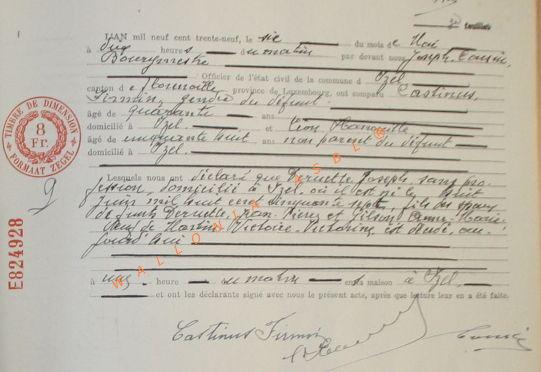 feuillet
L'AN mil neuf cent trente-neuf, le six du mois de Mai
à dix heures du matin par devant nous Joseph
Bourgmestre
Officier de l'état civil de la commune d Izel
canton de Florenville province de Luxembourg, ont comparu Castinus,
Firmin, gendre du défunt
âgé de quarante ans
domicilié à Izel et Léon
âgé de cinquante huit ans non parent du défunt
domicilié à Izel.
Lesquels nous ont déclaré que Deruette Joseph, sans pro-
fession, domicilié à Izel, où il est né le huit
Juin mil huit cent cinquante sept, fils des époux
défunts Deruette, Jean Pierre et Gilson Marie
veuf de Martin Victoire Victorine est décédé, au-
jourd'hui
à une heure du matin en sa maison à Izel
et ont les déclarants signé avec nous le présent acte, après que lecture leur en a été faite.
Castinus Firmin
TIMBRE DE DIMENSION
8
Fr.
FORMAAT ZEGEL
E824928
WALLONIA ASBL